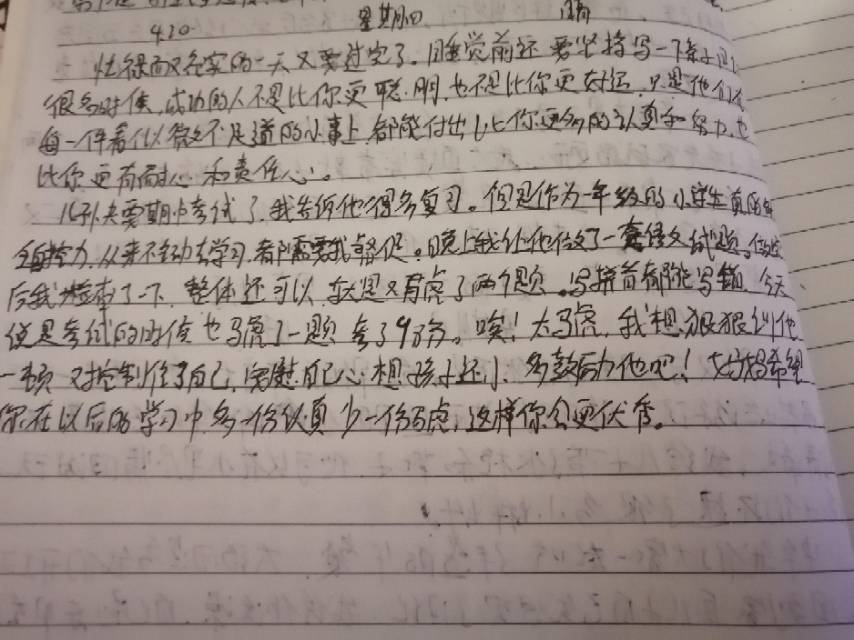 4.20 星期四 晴
忙碌而又充实的一天又要过完了。睡觉前还要坚持写一下亲子日
很多时候,成功的人不是比你更聪明,也不是比你更好运,只是他们在
每一件看似微不足道的小事上,都能付出比你更多的认真和努力,也
比你更有耐心和责任心。
儿子快要期中考试了,我告诉他得多复习。但是作为一年级的小学生真的
自控力,从来不主动去学习,都需要我督促。晚上我让他做了一套语文试题,做完
后我检查了一下,整体还可以,就是又马虎了两个题。写拼音都能写错,今天
说是考试的时候也马虎了一题,考了9分。唉!太马虎,我想狠狠训他
一顿,又控制住了自己,安慰自己心想孩子还小,多鼓励他吧!妈妈希望
你在以后的学习中多一份认真少一份马虎,这样你会更优秀。